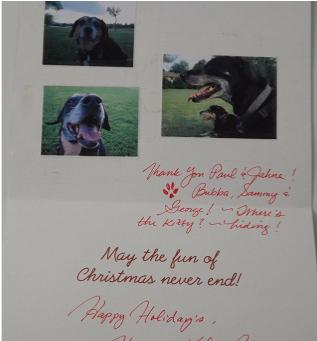 Thank You Paul & Jahna!
Bubba, Sammy &
George! ~ Where's
the Kitty? ~ hiding!
May the fun of
Christmas never end!
Happy Holiday's,